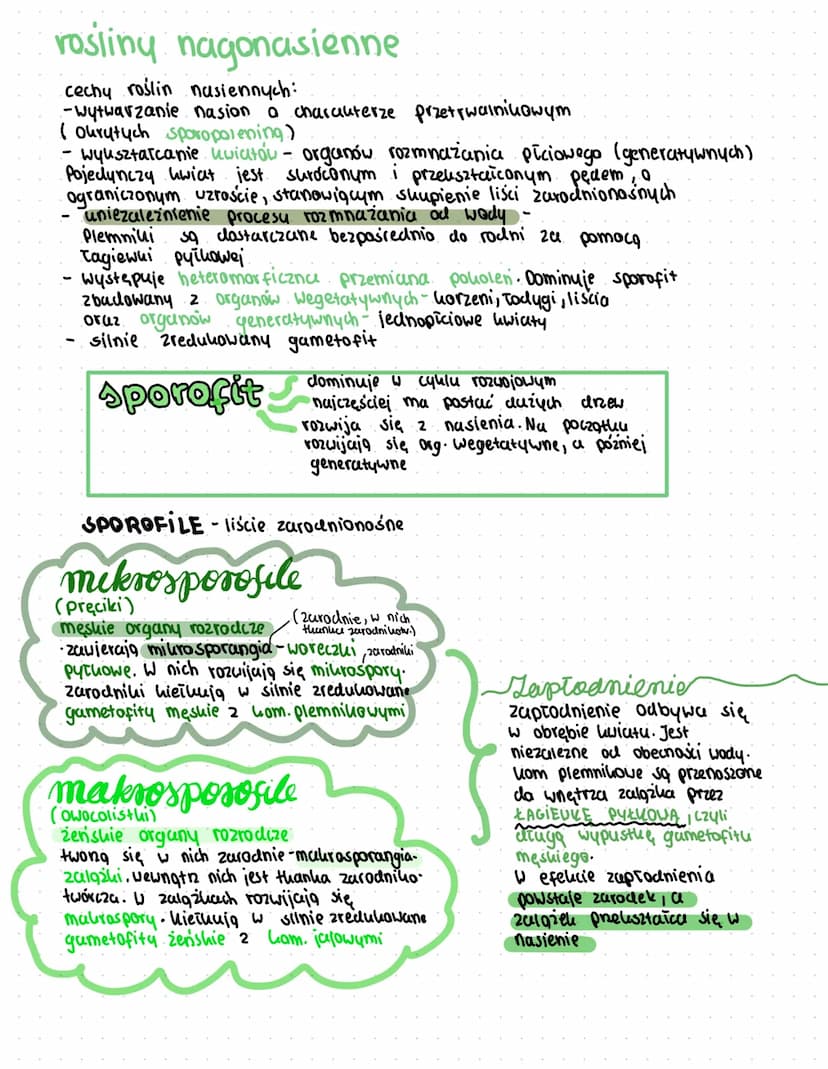 rośliny nagonasienne
cechy roślin nasiennych:
- wytwarzanie nasion o charakterze przetrwalnikowym
(okrytych sporopoleniną)
- wykształcanie kwiatów - organów rozmnażania płciowego (generatywnych)
Pojedynczy kwiat jest skróconym i przekształconym pędem, o
ograniczonym wzroście, stanowiącym skupienie liści zarodnionośnych
- uniezależnienie procesu rozmnażania od wody -
Plemniki są dostarczane bezpośrednio do rodni za pomocą
łagiewki pyłkowej
- występuje heteromorficzna przemiana pokoleń. Dominuje sporofit
zbudowany z organów wegetatywnych - korzeni, łodygi, liścia
oraz organów generatywnych - jednopłciowe kwiaty
- silnie zredukowany gametofit
sporofit
dominuje w cyklu rozwojowym
najczęściej ma postać dużych drzew
rozwija się z nasienia. Na początku
rozwijają się org. wegetatywne, a później
generatywne
SPOROFILE - liście zarodnionośne
mikrosporofile
(pręciki)
męskie organy rozrodcze
(zarodnie, w nich
tkanka zarodnikotw.)
· zawierają mikrosporangia - woreczki
pyłkowe. W nich rozwijają się mikrospory.
zarodniki
zarodniki kiełkują w silnie zredukowane
gametofity męskie z kom. plemnikowymi
makrosporofile
(owocolistki)
żeńskie organy rozrodcze
tworzą się w nich zarodnie - makrosporangia -
zalążki. wewnątrz nich jest tkanka zarodniko-
twórcza. W zalążkach rozwijają się
makrospory. kiełkują w silnie zredukowane
gametofity żeńskie z kom. jajowymi
Zapłodnienie
zapłodnienie odbywa się
w obrębie kwiatu. Jest
niezależne od obecności wody.
kom plemnikowe są przenoszone
do wnętrza zalążka przez
ŁAGIEWKĘ PYŁKOWĄ, czyli
długą wypustkę gametofitu
męskiego.
W efekcie zapłodnienia
powstaje zarodek, a
zalążek przekształca się w
nasienie